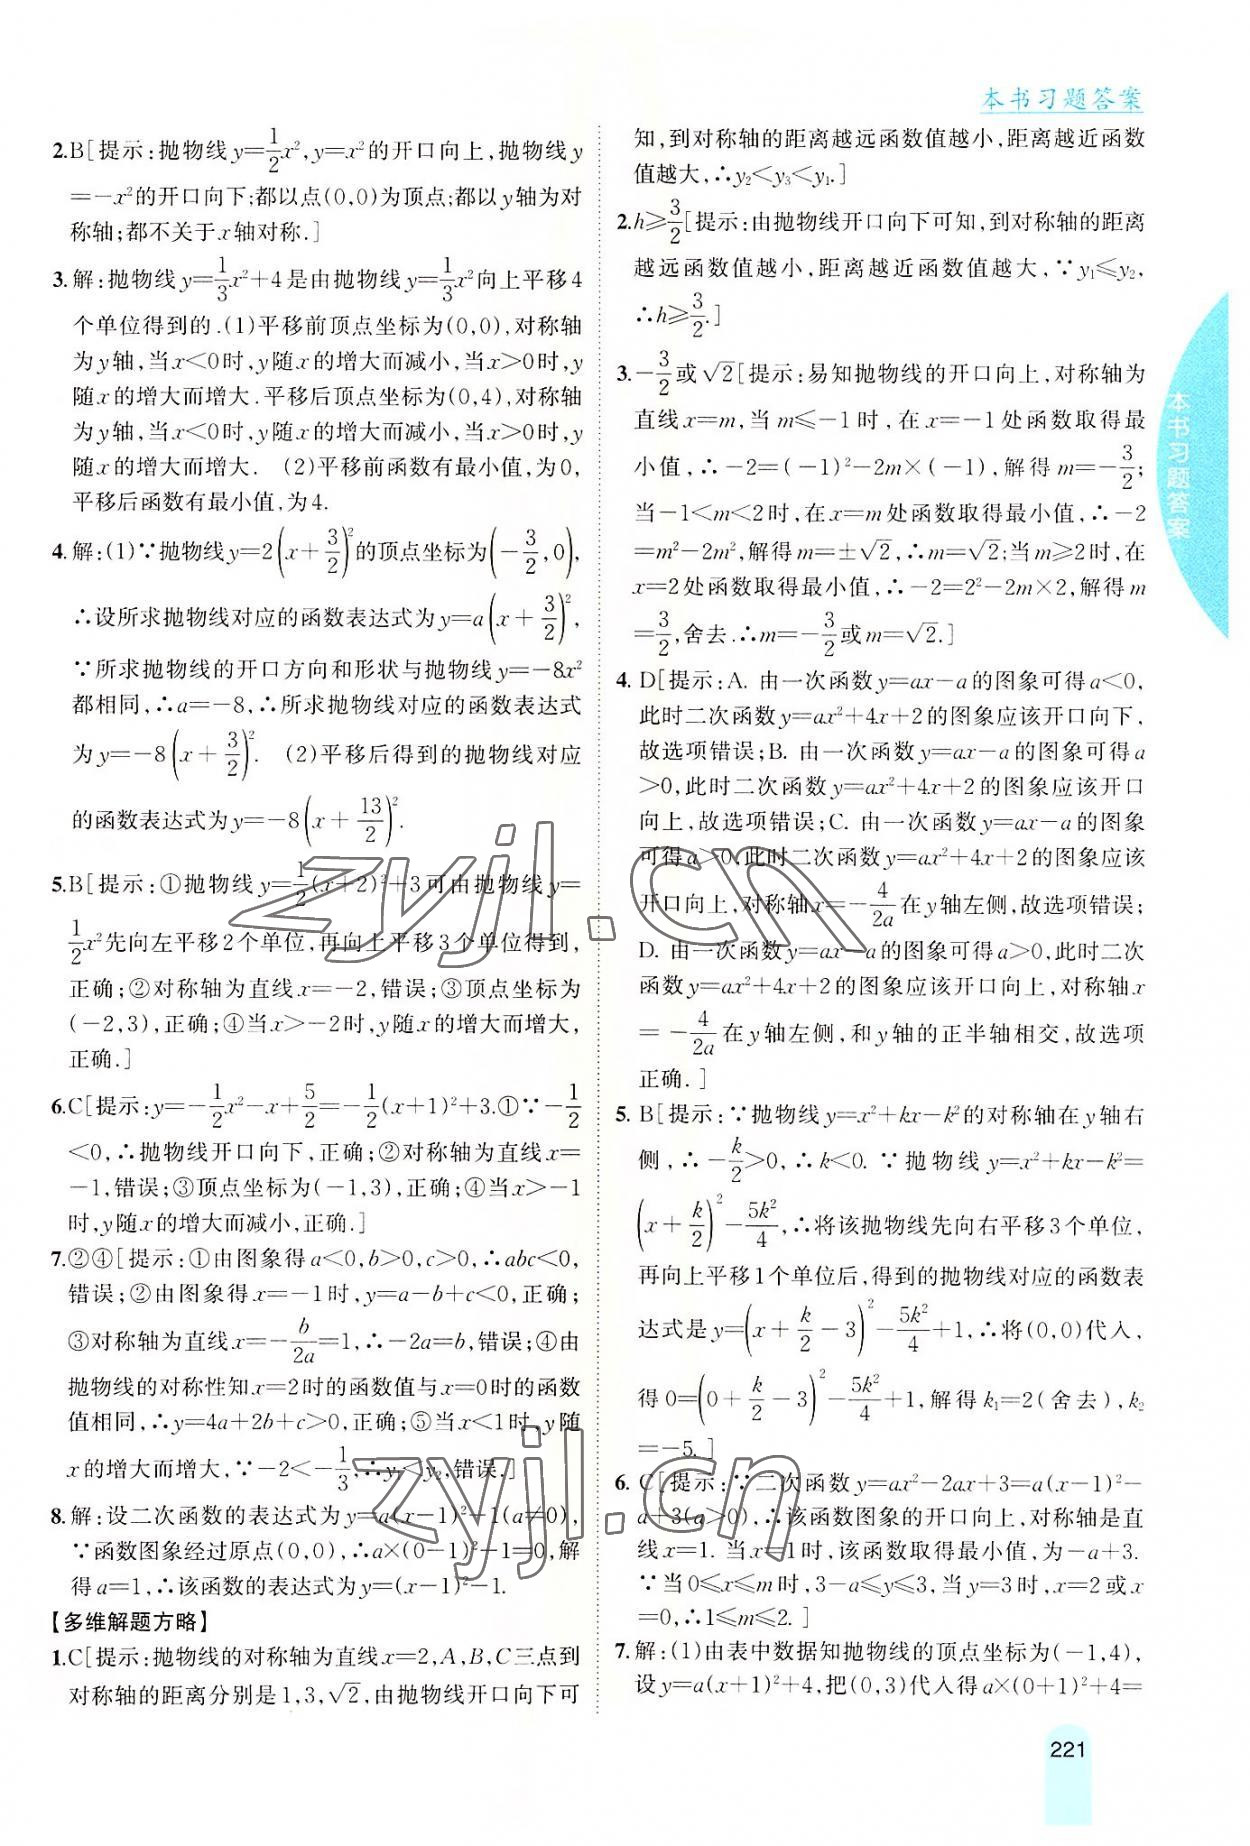 本书习题答案
2.B[提示:抛物线y=1/2x²,y=x²的开口向上,抛物线y
=-x²的开口向下;都以点(0,0)为顶点;都以y轴为对
称轴;都不关于x轴对称.]
3.解:抛物线y=1/3x²+4是由抛物线y=1/3x²向上平移4
个单位得到的.(1)平移前顶点坐标为(0,0),对称轴
为y轴,当x<0时,y随x的增大而减小,当x>0时,y
随x的增大而增大.平移后顶点坐标为(0,4),对称轴
为y轴,当x<0时,y随x的增大而减小,当x>0时,y
随x的增大而增大. (2)平移前函数有最小值,为0,
平移后函数有最小值,为4.
4.解:(1)∵抛物线y=2(x+3/2)²的顶点坐标为(-3/2,0),
∴设所求抛物线对应的函数表达式为y=a(x+3/2)²,
∵所求抛物线的开口方向和形状与抛物线y=-8x²
都相同,∴a=-8,∴所求抛物线对应的函数表达式
为y=-8(x+3/2)². (2)平移后得到的抛物线对应
的函数表达式为y=-8(x+13/2)².
5.B[提示:①抛物线y=1/2(x+2)²+3可由抛物线y=
1/2x²先向左平移2个单位,再向上平移3个单位得到,
正确;②对称轴为直线x=-2,错误;③顶点坐标为
(-2,3),正确;④当x>-2时,y随x的增大而增大,
正确.]
6.C[提示:y=-1/2x²-x+5/2=-1/2(x+1)²+3.①∵-1/2
<0,∴抛物线开口向下,正确;②对称轴为直线x=
-1,错误;③顶点坐标为(-1,3),正确;④当x>-1
时,y随x的增大而减小,正确.]
7.②④[提示:①由图象得a<0,b>0,c>0,∴abc<0,
错误;②由图象得x=-1时,y=a-b+c<0,正确;
③对称轴为直线x=-b/2a=1,∴-2a=b,错误;④由
抛物线的对称性知x=2时的函数值与x=0时的函数
值相同,∴y=4a+2b+c>0,正确;⑤当x<1时,y随
x的增大而增大,∵-2<-1/3,∴y₁<y₂,错误.]
8.解:设二次函数的表达式为y=a(x-1)²-1(a≠0),
∵函数图象经过原点(0,0),∴a×(0-1)²-1=0,解
得a=1,∴该函数的表达式为y=(x-1)²-1.
【多维解题方略】
1.C[提示:抛物线的对称轴为直线x=2,A,B,C三点到
对称轴的距离分别是1,3,√2,由抛物线开口向下可
知,到对称轴的距离越远函数值越小,距离越近函数
值越大,∴y₂<y₃<y₁.]
2.h≥3/2[提示:由抛物线开口向下可知,到对称轴的距离
越远函数值越小,距离越近函数值越大,∵y₁≤y₂,
∴h≥3/2.]
3.-3/2或√2[提示:易知抛物线的开口向上,对称轴为
直线x=m,当m≤-1时,在x=-1处函数取得最
小值,∴-2=(-1)²-2m×(-1),解得m=-3/2;
当-1<m<2时,在x=m处函数取得最小值,∴-2
=m²-2m²,解得m=±√2,∴m=√2;当m≥2时,在
x=2处函数取得最小值,∴-2=2²-2m×2,解得m
=3/2,舍去.∴m=-3/2或m=√2.]
4.D[提示:A. 由一次函数y=ax-a的图象可得a<0,
此时二次函数y=ax²+4x+2的图象应该开口向下,
故选项错误;B. 由一次函数y=ax-a的图象可得a
>0,此时二次函数y=ax²+4x+2的图象应该开口
向上,故选项错误;C. 由一次函数y=ax-a的图象
可得a>0,此时二次函数y=ax²+4x+2的图象应该
开口向上,对称轴x=-4/2a在y轴左侧,故选项错误;
D. 由一次函数y=ax-a的图象可得a>0,此时二次
函数y=ax²+4x+2的图象应该开口向上,对称轴x
=-4/2a在y轴左侧,和y轴的正半轴相交,故选项
正确.]
5.B[提示:∵抛物线y=x²+kx-k²的对称轴在y轴右
侧,∴-k/2>0,∴k<0.∵抛物线y=x²+kx-k²=
(x+k/2)²-5k²/4,∴将该抛物线先向右平移3个单位,
再向上平移1个单位后,得到的抛物线对应的函数表
达式是y=(x+k/2-3)²-5k²/4+1,∴将(0,0)代入,
得0=(0+k/2-3)²-5k²/4+1,解得k₁=2(舍去),k₂
=-5.]
6.C[提示:∵二次函数y=ax²-2ax+3=a(x-1)²-
a+3(a>0),∴该函数图象的开口向上,对称轴是直
线x=1. 当x=1时,该函数取得最小值,为-a+3.
∵当0≤x≤m时,3-a≤y≤3,当y=3时,x=2或x
=0,∴1≤m≤2.]
7.解:(1)由表中数据知抛物线的顶点坐标为(-1,4),
设y=a(x+1)²+4,把(0,3)代入得a×(0+1)²+4=
本书习题答案
221
zyjl.cn
zyjl.cn